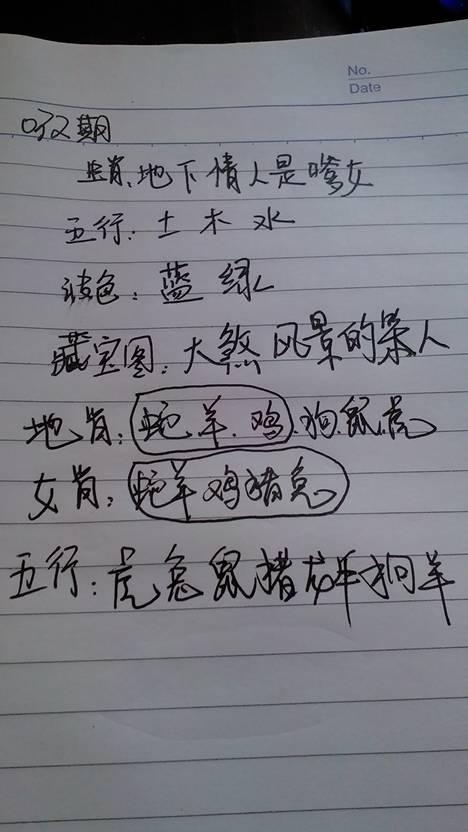 No.
Date
032期
生肖:地下情人是嗲女
五行:土木水
波色:蓝绿
藏宝图:大煞风景的某人
地肖:蛇羊.鸡.狗鼠虎
女肖:蛇羊鸡猪兔
五行:虎兔鼠猪龙牛狗羊